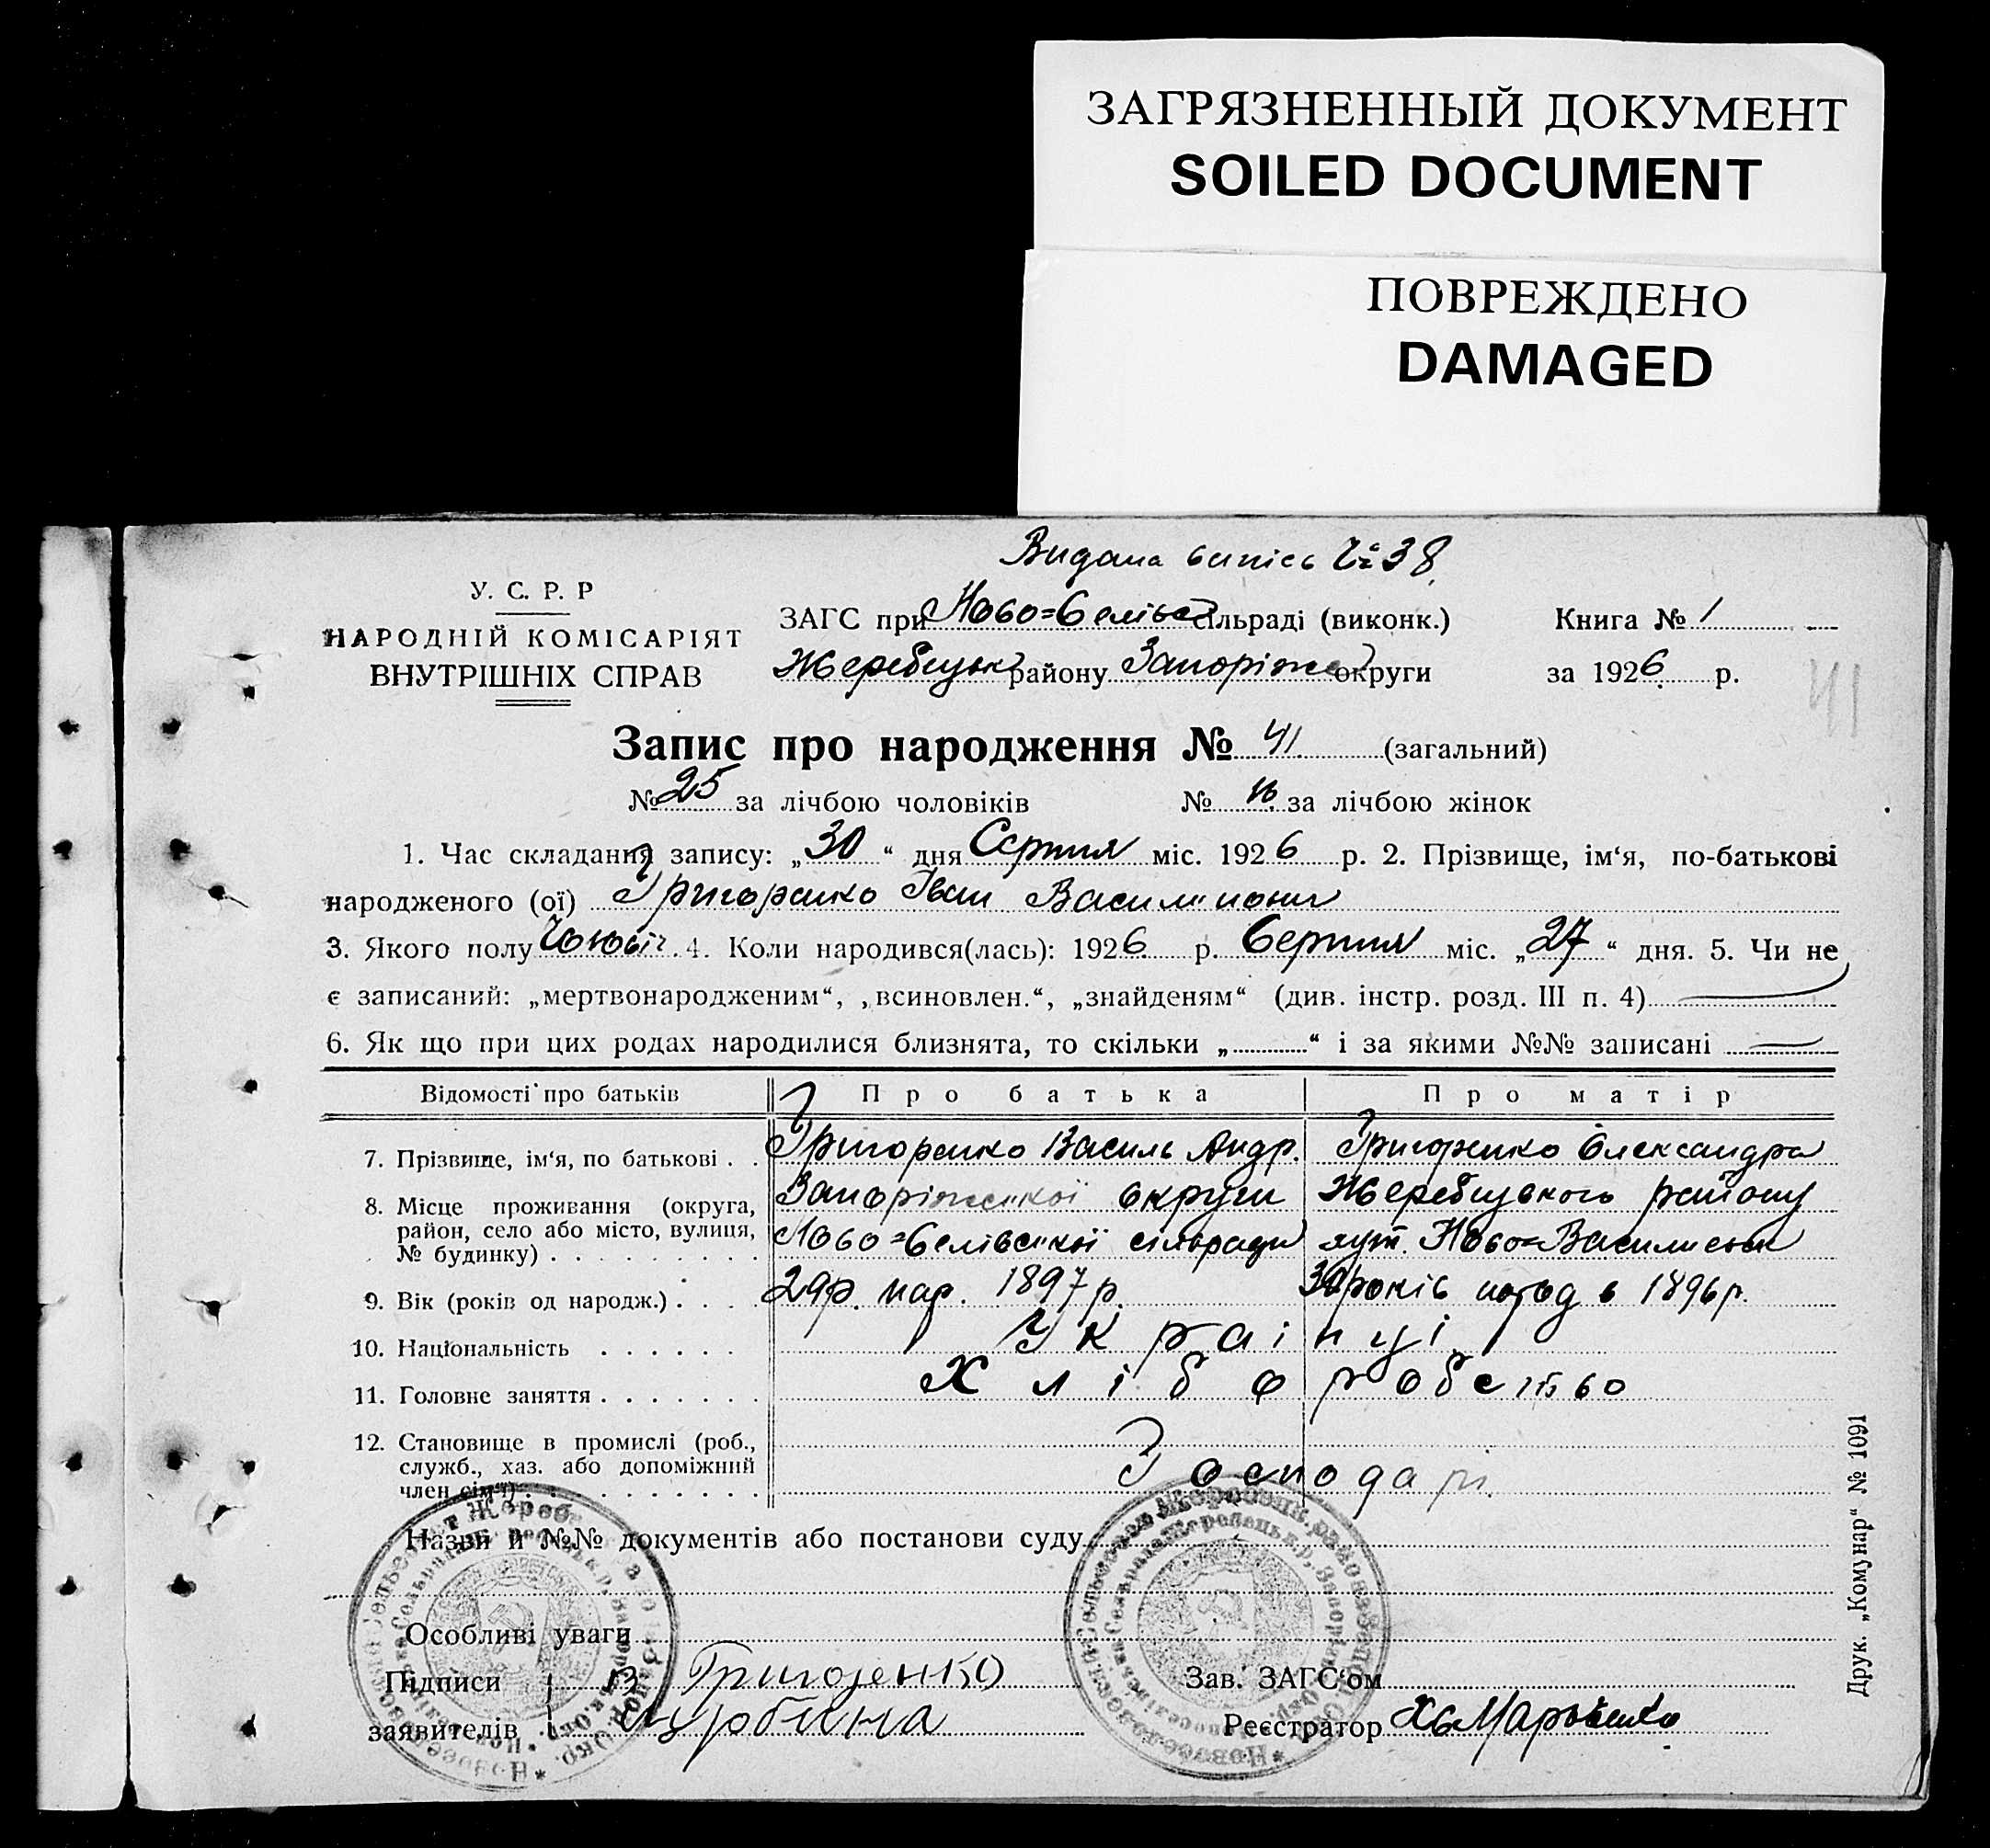 ЗАГРЯЗНЕННЫЙ ДОКУМЕНТ
SOILED DOCUMENT
ПОВРЕЖДЕНО
DAMAGED
Видана випісь № 38
У. С. Р. Р
НАРОДНІЙ КОМІСАРІЯТ
ВНУТРІШНІХ СПРАВ
ЗАГС при Ново=Селівсь сільраді (виконк.) Книга № 1
Жеребецьк району Запоріжс округи за 1926 р.
41
Запис про народження № 41 (загальний)
№ 25 за лічбою чоловіків № 16 за лічбою жінок
1. Час складання запису: „30“ дня Серпня міс. 1926 р. 2. Прізвище, ім‘я, по-батькові
народженого (ої) Григоренко Іван Васильович
3. Якого полу 4. Коли народився(лась): 1926 р. Серпня міс. „27“ дня. 5. Чи не
є записаний: „мертвонародженим“, „всиновлен.“, „знайденям“ (див. інстр. розд. III п. 4)
6. Як що при цих родах народилися близнята, то скільки „ “ і за якими №№ записані
Відомості про батьків Про батька Про матір
7. Прізвище, ім‘я, по батькові Григоренко Василь Андр. Григоренко Олександра
8. Місце проживання (округа, Запоріжської округи Жеребецького району
район, село або місто, вулиця, Ново=Селівської сільради хут. Ново=
№ будинку)
9. Вік (років од народж.) 29р. нар. 1897 р. 30 років народ в 1896 р.
10. Національність Українці
11. Головне заняття Хліборобство
12. Становище в промислі (роб.,
служб., хаз. або допоміжний
член сім‘ї) Господарі
Назви й №№ документів або постанови суду
Особливі уваги
Підписи В Григоренко
заявителів
Зав. ЗАГС‘ом
Реєстратор Марченко
Друк. „Комунар“ № 1091